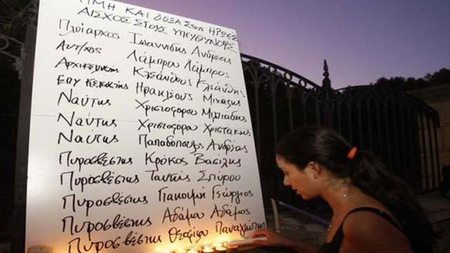 ΤΙΜΗ ΚΑΙ ΔΟΞΑ ΣΤΟΥΣ ΗΡΩΕΣ
ΑΙΣΧΟΣ ΣΤΟΥΣ ΥΠΕΥΘΥΝΟΥΣ
Πλοίαρχος Ιωαννίδης Ανδρέας
Λάμπρου Λάμπρος
Αρχικελευστής Κλεάνθους Κλεάνθης
Ηρακλέους Μιχάλης
Ναύτης Χριστοφόρου Μιλτιάδης
Ναύτης Χριστοφόρου Χριστάκης
Ναύτης Παπαδόπουλος Αντώνης
Πυροσβέστης Κρόκος Βασίλης
Πυροσβέστης Ταντής Σπύρου
Πυροσβέστης Γιακουμή Γεώργιος
Πυροσβέστης Αδάμου Αδάμος
Πυροσβέστης Θεοφίλου Παναγιώτης